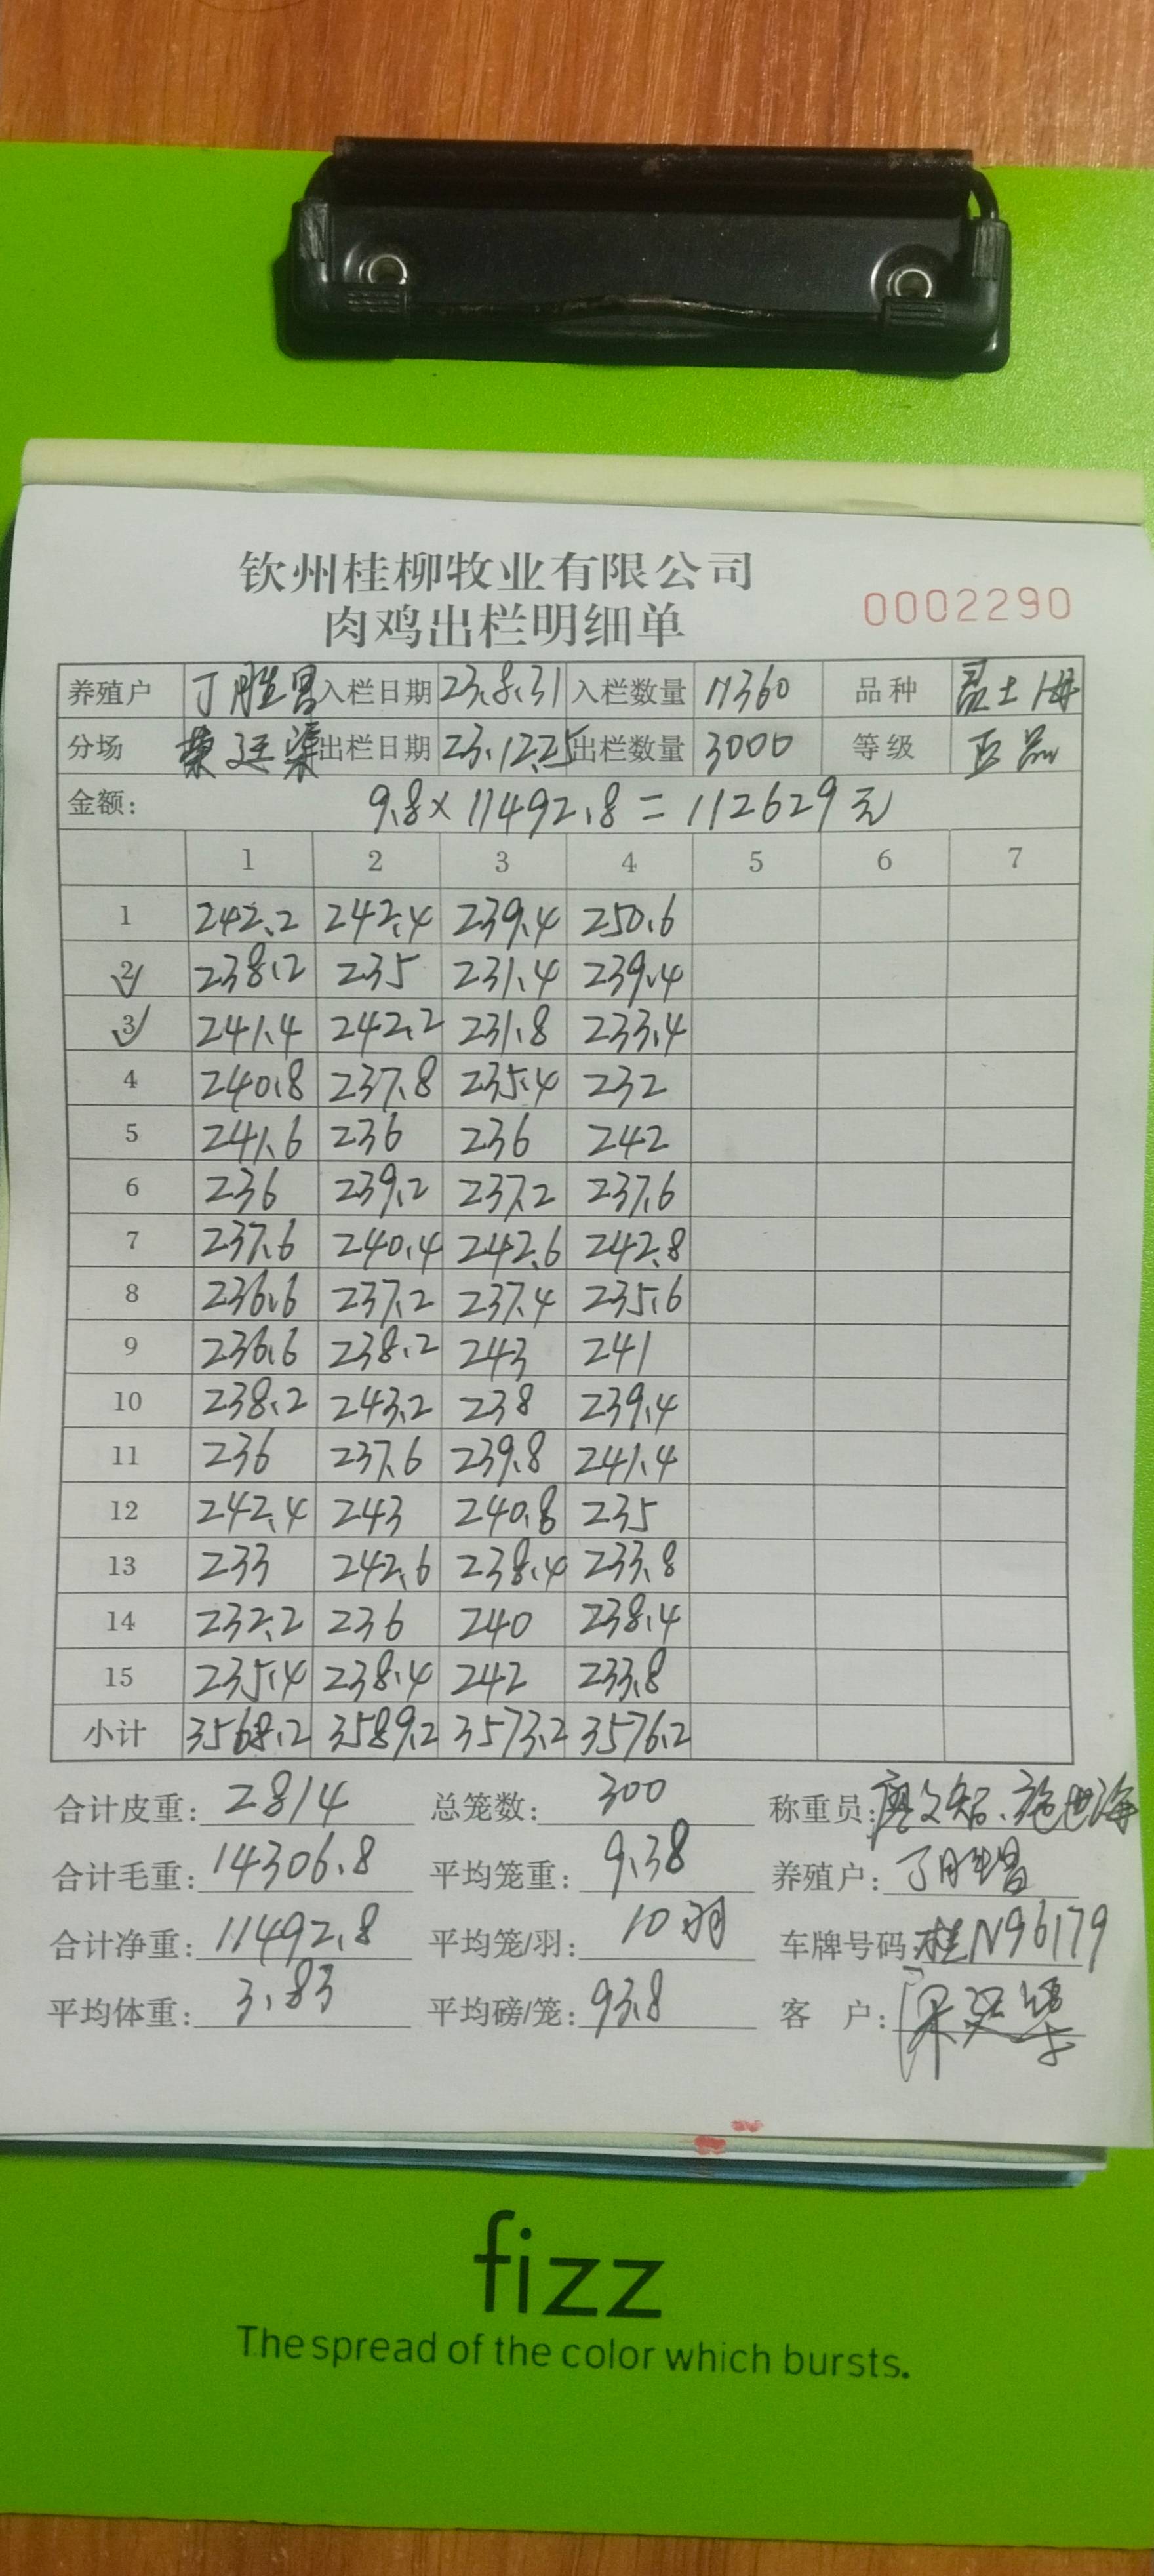 钦州桂柳牧业有限公司
肉鸡出栏明细单
0002290
养殖户 丁胜昌 入栏日期 23.8.31 入栏数量 11360 品种 土
分场 出栏日期 23.12.25 出栏数量 3000 等级 正品
金额: 9.8×11492.8=112629元
1 2 3 4 5 6 7
1 242.2 242.4 239.4 250.6
2 238.2 235 231.4 239.4
3 241.4 242.2 231.8 233.4
4 240.8 237.8 235.4 232
5 241.6 236 236 242
6 236 239.2 237.2 237.6
7 237.6 240.4 242.6 242.8
8 236.6 237.2 237.4 235.6
9 236.6 238.2 243 241
10 238.2 243.2 238 239.4
11 236 237.6 239.8 241.4
12 242.4 243 240.8 235
13 233 242.6 238.4 233.8
14 232.2 236 240 238.4
15 235.4 238.4 242 233.8
小计 3568.2 3589.2 3573.2 3576.2
合计皮重: 2814 总笼数: 300 称重员:
合计毛重: 14306.8 平均笼重: 9.38 养殖户: 丁胜昌
合计净重: 11492.8 平均笼/羽: 10羽 车牌号码: 桂N96179
平均体重: 3.83 平均磅/笼: 93.8 客户:
fizz
The spread of the color which bursts.